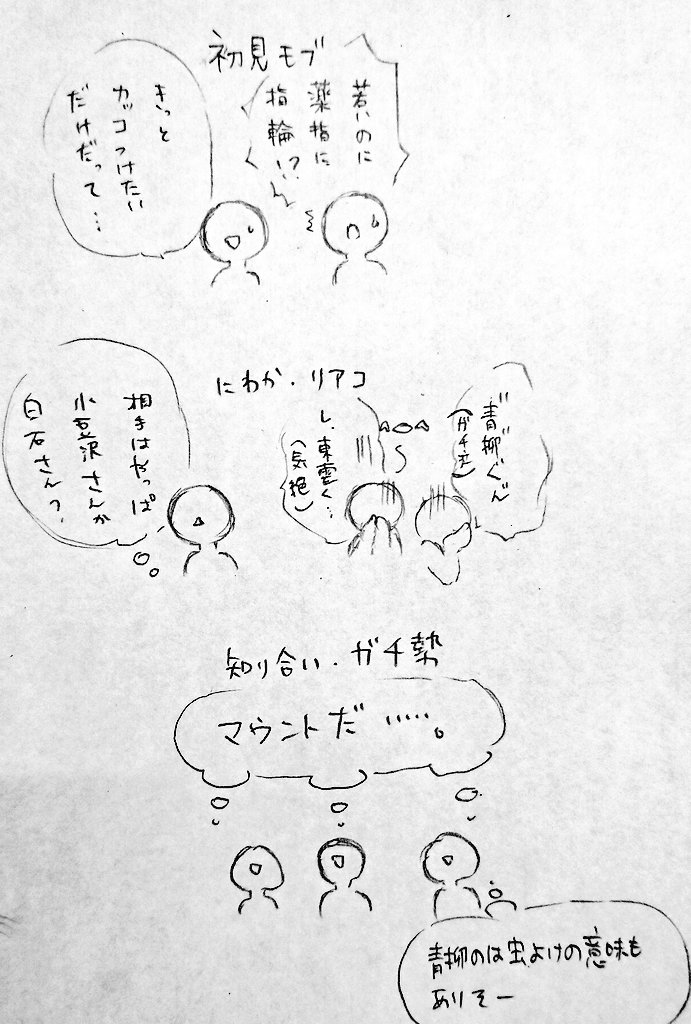 初見モブ
若いのに
薬指に
指輪!?
きっと
カッコつけたい
だけだって…
にわか・リアコ
青柳ぐん
(ガチ恋)
し、東雲く…
(気絶)
相手はやっぱ
小豆沢さんか
白石さん?
知り合い・ガチ勢
マウントだ……。
青柳のは虫よけの意味も
ありそー